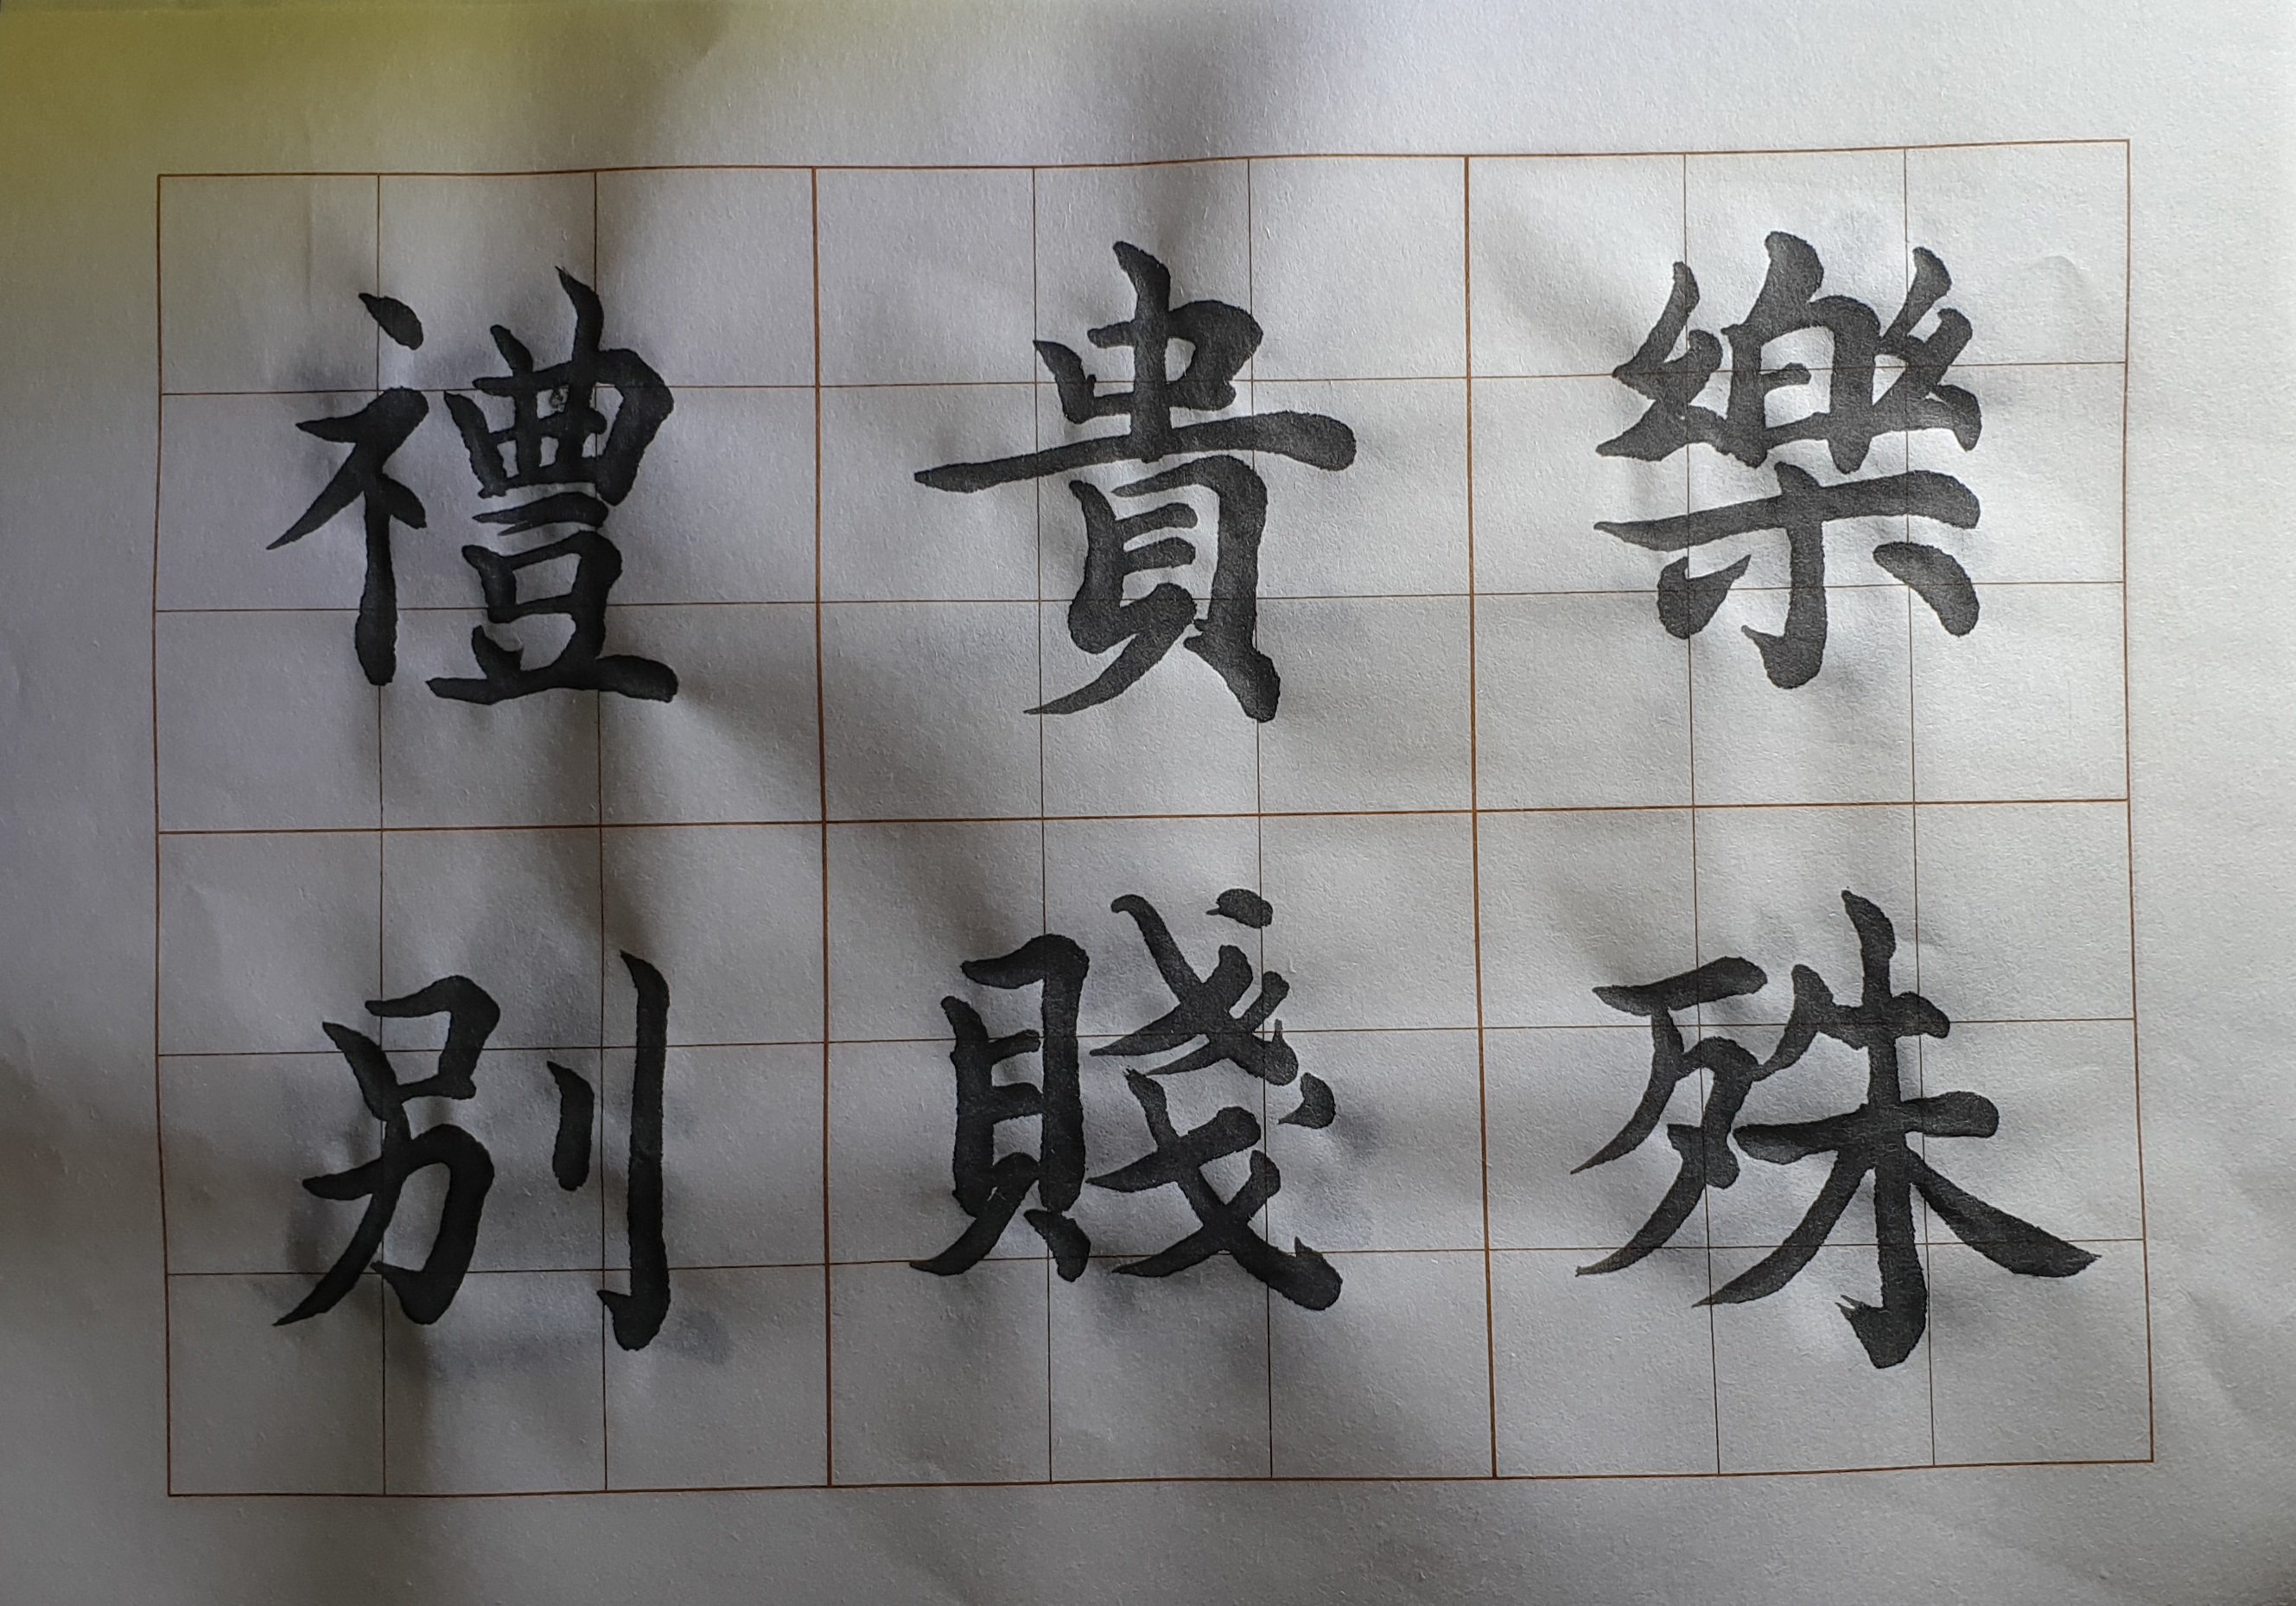 樂殊
貴賤
禮別